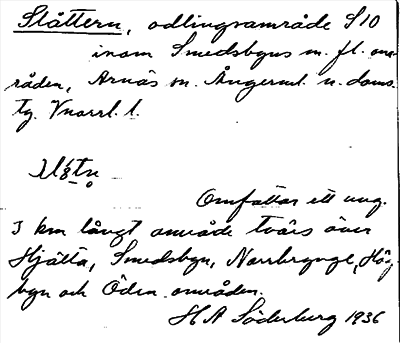 Slåttern, odlingsområde S10
inom Smedsbyns m. fl. områ-
råden, Arnäs sn. Ångerml. n. doms.
tg. Vnorrl. l.
Omfattar ett ung.
3 km långt område tvärs över
Hjältta, Smedsbyn, Norrbrynge, Hög-
byn och Öden områden.
H A Söderburg 1936